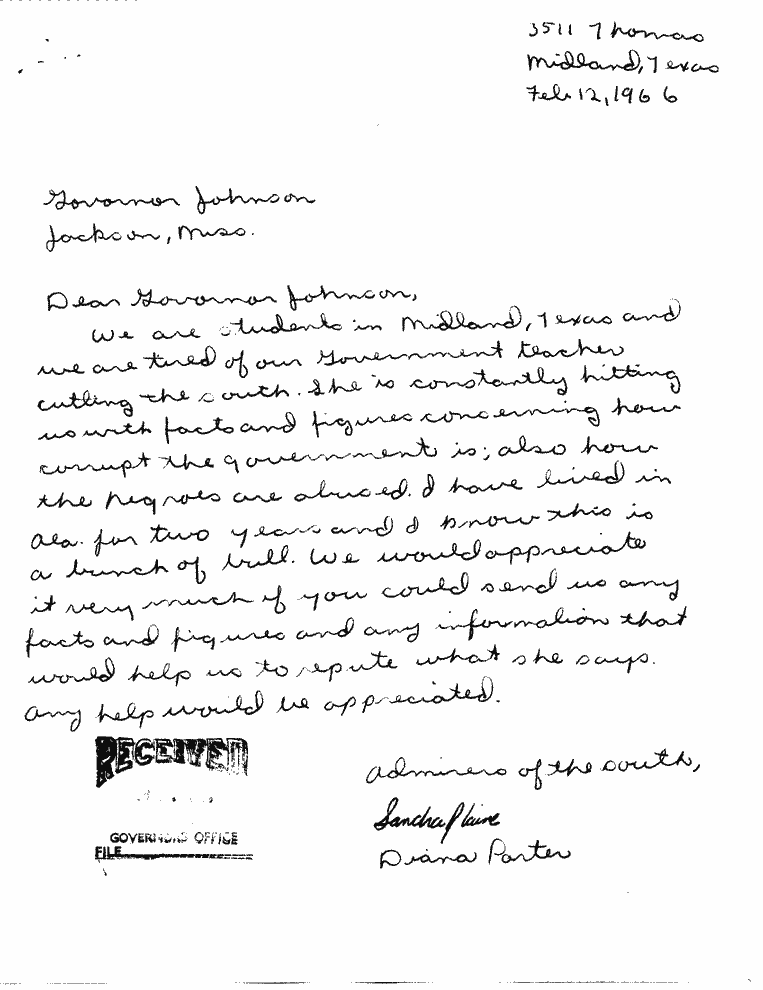 3511 Thomas
Midland, Texas
Feb. 12, 1966
Governor Johnson
Jackson, Miss.
Dear Governor Johnson,
We are students in Midland, Texas and
we are tired of our Government teacher
cutting the south. She is constantly hitting
us with facts and figures concerning how
corrupt the government is; also how
the negroes are abused. I have lived in
Ala. for two years and I know this is
a bunch of bull. We would appreciate
it very much if you could send us any
facts and figures and any information that
would help us to repute what she says.
Any help would be appreciated.
RECEIVED
GOVERNOR'S OFFICE
FILE
Admirers of the south,
Sandra
Diana Porter